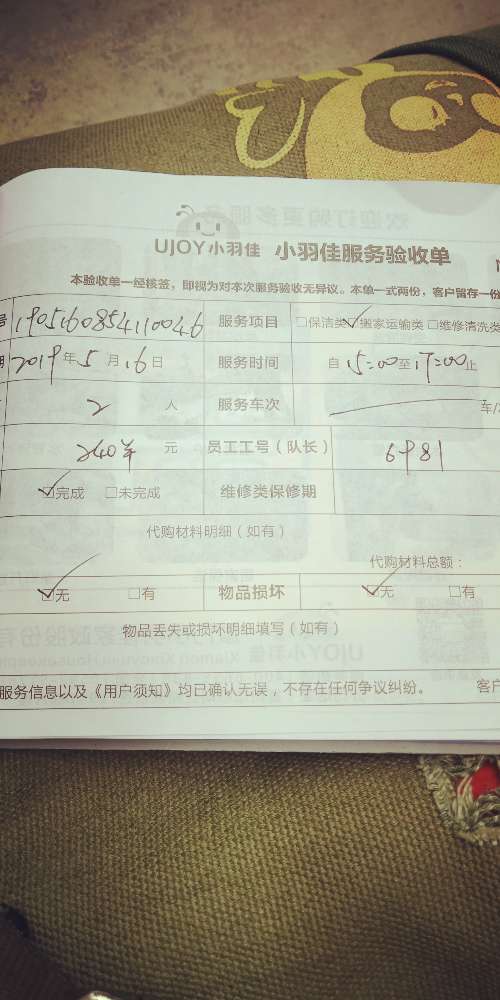 UJOY小羽佳 小羽佳服务验收单
本验收单一经核签，即视为对本次服务验收无异议。本单一式两份，客户留存一份
号 1905160854110046 服务项目 □保洁类 ☑搬家运输类 □维修清洗类
期 2019年5月16日 服务时间 自15:00至17:00止
2 人 服务车次 车/
240 元 员工工号（队长） 6981
☑完成 □未完成 维修类保修期
代购材料明细（如有）
代购材料总额：
☑无 □有 物品损坏 ☑无 □有
物品丢失或损坏明细填写（如有）
服务信息以及《用户须知》均已确认无误，不存在任何争议纠纷。 客户